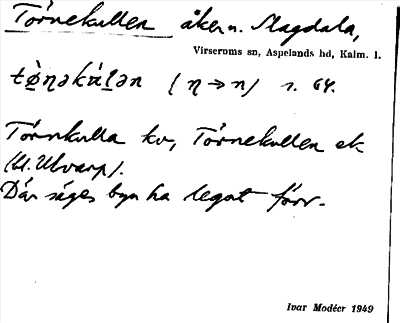 Törnekullen åkern. Magdala,
Virserums sn, Aspelands hd, Kalm. l.
tø̀ṇəkùḷən (ṇ → n) s. 64.
Törnkulla kv, Törnekullen ek
(U. Ulvarp).
Där säges byn ha legat förr.
Ivar Modéer 1949